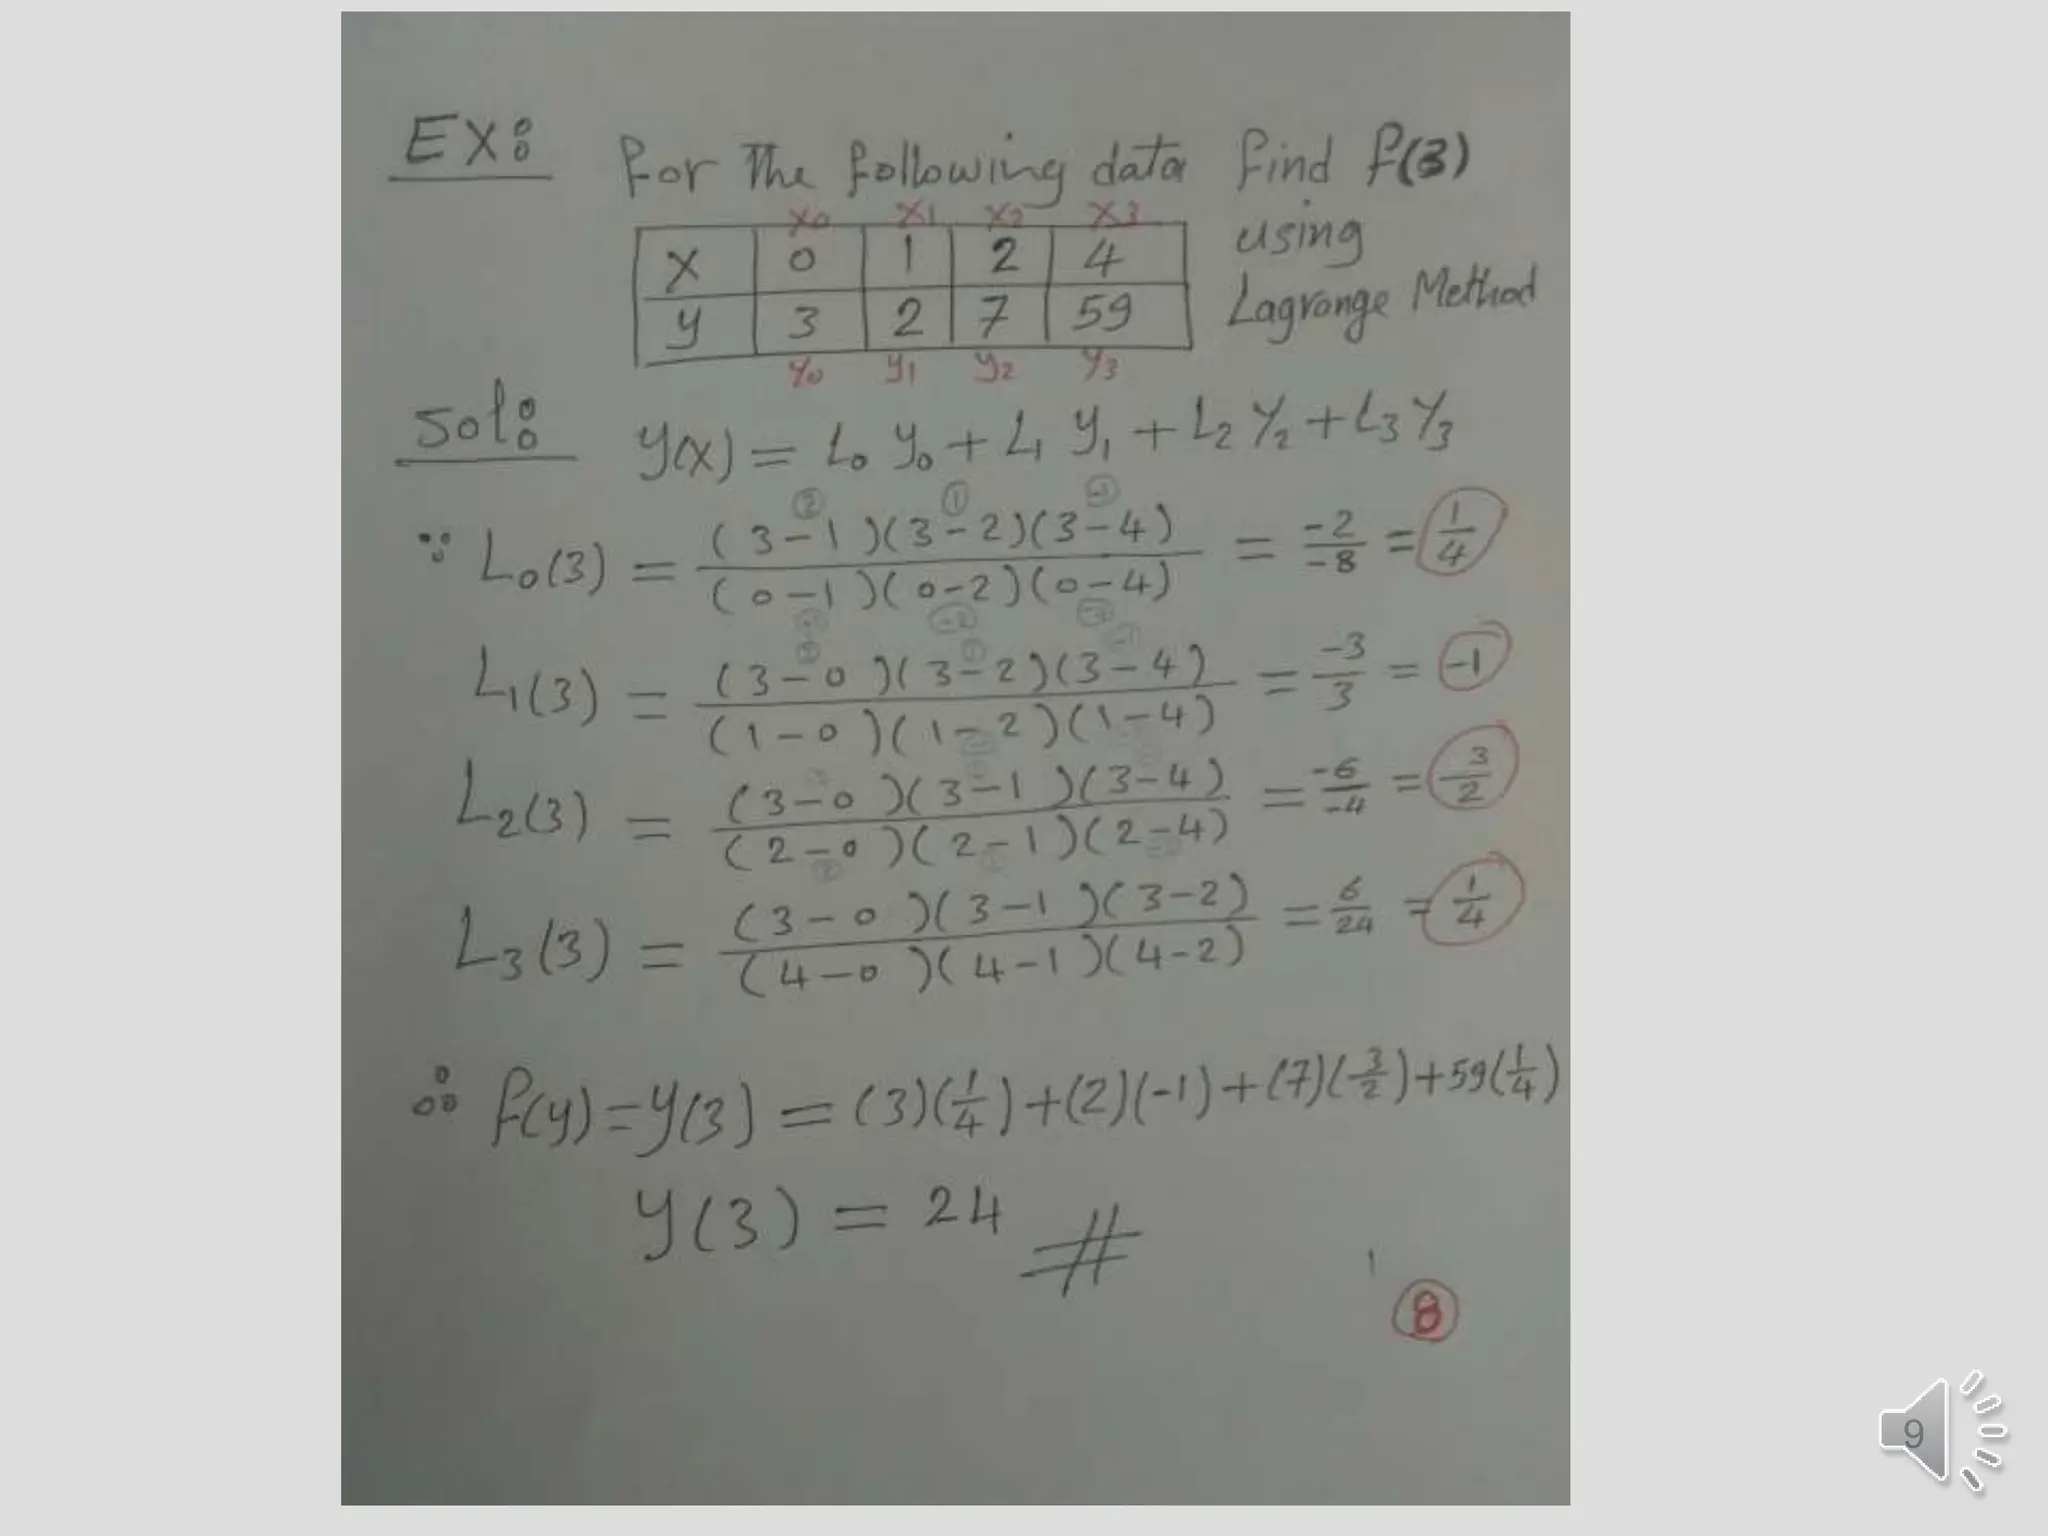 EX: for the following data find f(3)
using
Lagrange Method
x0 x1 x2 x3
x 0 1 2 4
y 3 2 7 59
y0 y1 y2 y3
Sol: y(x) = L0 y0 + L1 y1 + L2 y2 + L3 y3
2 1 -1
∵ L0(3) = (3-1)(3-2)(3-4) / (0-1)(0-2)(0-4) = -2/-8 = 1/4
L1(3) = (3-0)(3-2)(3-4) / (1-0)(1-2)(1-4) = -3/3 = -1
L2(3) = (3-0)(3-1)(3-4) / (2-0)(2-1)(2-4) = -6/-4 = 3/2
L3(3) = (3-0)(3-1)(3-2) / (4-0)(4-1)(4-2) = 6/24 = 1/4
∴ f(y) = y(3) = (3)(1/4) + (2)(-1) + (7)(3/2) + 59(1/4)
y(3) = 24 #
8
9